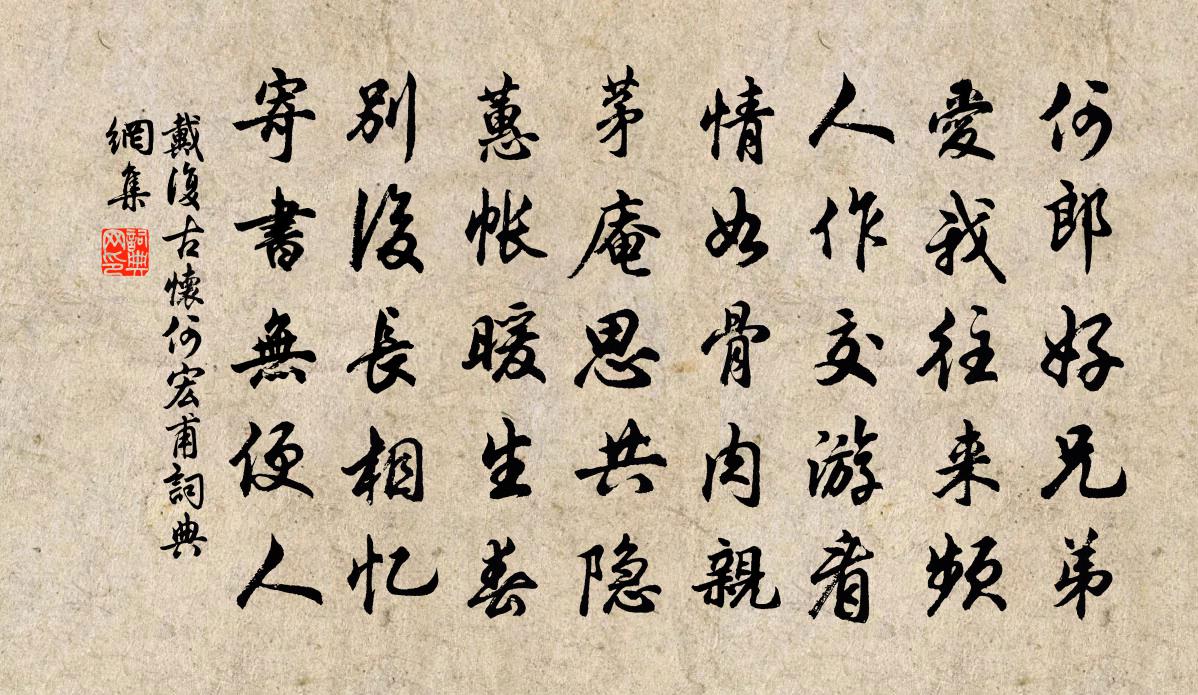 何郎好兄弟
愛我往来頻
人作交游看
情如骨肉親
茅庵思共隐
蕙帐暖生春
别後長相忆
寄書無便人
戴復古懷何宏甫詞典
網集
詞典
网印